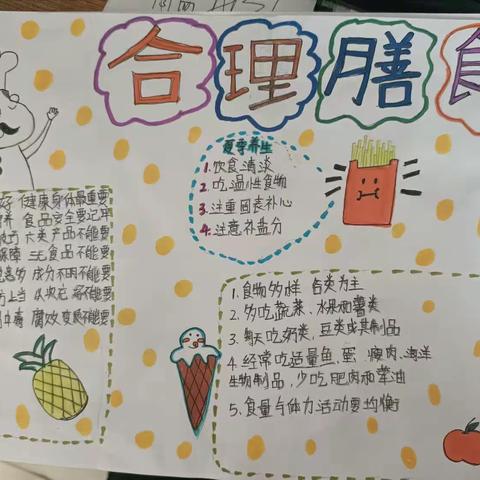 合理膳食
夏季养生
1.饮食清淡
2.吃温性食物
3.注重固表补心
4.注意补盐分
好 健康身体最重要
养 食品安全要记牢
六类产品不能要
障 三无食品不能要
多 成分不明不能要
上当 以次充好不能要
毒 腐败变质不能要
1.食物多样 谷类为主
2.多吃蔬菜、水果和薯类
3.每天吃奶类、豆类或其制品
4.经常吃适量鱼、蛋、瘦肉、海洋
生物制品,少吃肥肉和荤油
5.食量与体力活动要均衡